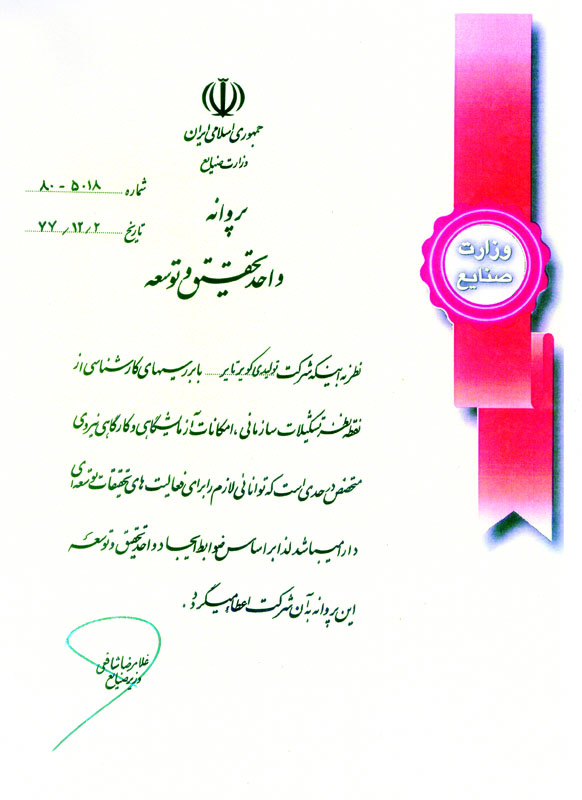 جمهوری اسلامی ایران
وزارت صنایع
شماره ۵۰۱۸ - ۸۰
تاریخ ۷۷/۱۲/۲
پروانه
واحد تحقیق و توسعه
وزارت
صنایع
نظر به اینکه شرکت تولیدی کویر تایر با بررسیهای کارشناسی از
نقطه نظر تشکیلات سازمانی، امکانات آزمایشگاهی و کارگاهی نیروی
متخصص در حدی است که توانائی لازم را برای فعالیت های تحقیقات توسعه ای
دارا میباشد لذا بر اساس ضوابط ایجاد واحد تحقیق و توسعه
این پروانه به آن شرکت اعطا میگردد.
غلامرضا شافعی
وزیر صنایع